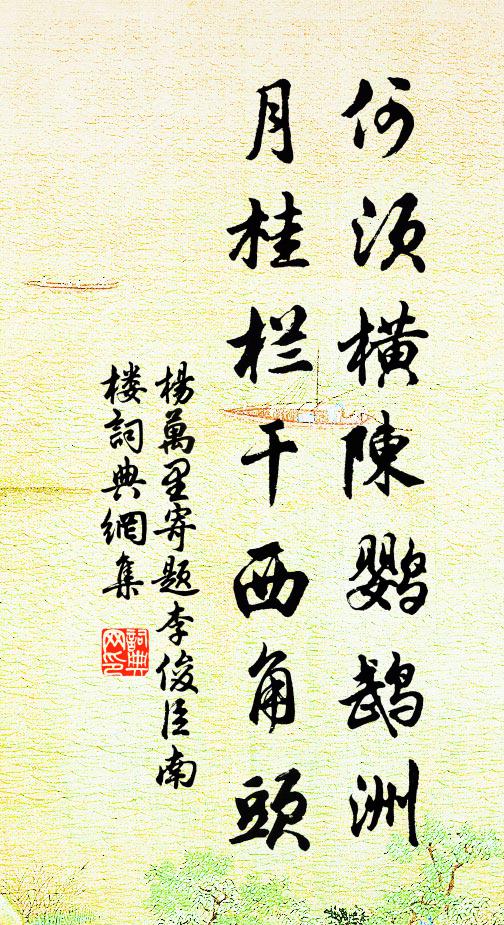 何须横陳鹦鹉洲
月桂栏干西角頭
楊萬里寄题李俊臣南
楼詞典網集
詞典网印